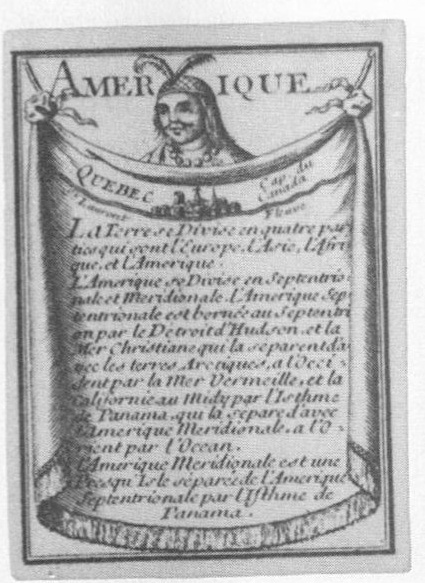 AMERIQUE
QUEBEC
Cap. du
Canada
St Laurent Fleuve
La Terre se Divise en quatre par=
ties qui sont l'Europe, l'Asie, l'Afri
que, et l'Amerique.
L'Amerique se Divise en Septentrio=
nale et Meridionale. L'Amerique Sep=
tentrionale est bornée au Septentri
on par le Detroit d'Hudson, et la
Mer Christiane qui la separent d'a
vec les terres Arctiques, a l'Occi=
dent par la Mer Vermeille, et la
Californie au Midy par l'Isthme
de Panama, qui la separe d'avec
l'Amerique Meridionale, a l'O=
rient par l'Ocean.
L'Amerique Meridionale est une
Presqu'Isle separée de l'Amerique
Septentrionale par l'Isthme de
Panama.